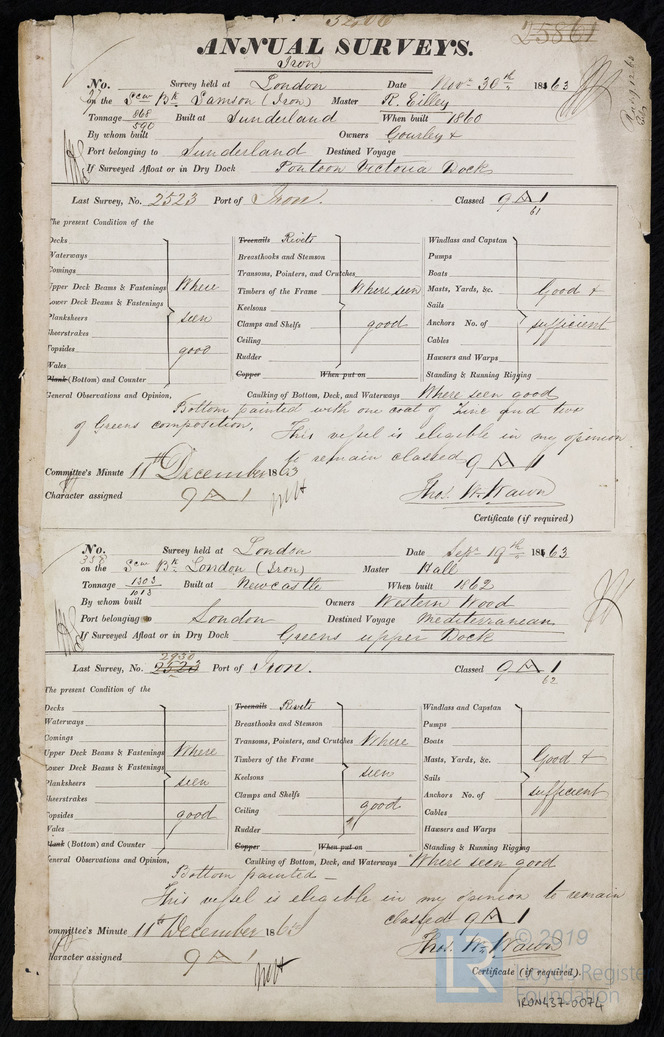 25861
ANNUAL SURVEYS.
Iron
No. Survey held at London Date Novr 30th 1863
on the Scw Bk Samson (Iron) Master R. Eilley
Tonnage 868 / 590 Built at Sunderland When built 1860
By whom built Owners Gourley &
Port belonging to Sunderland Destined Voyage
If Surveyed Afloat or in Dry Dock Pontoon Victoria Docks
Last Survey, No. 2523 Port of Iron. Classed 9 A 1
61
The present Condition of the
Decks Treenails Rivets Windlass and Capstan
Waterways Breasthooks and Stemson Pumps
Comings Transoms, Pointers, and Crutches Boats
Upper Deck Beams & Fastenings Where Timbers of the Frame Where seen Masts, Yards, &c. Good &
Lower Deck Beams & Fastenings Keelsons Sails
Planksheers seen Clamps and Shelfs good Anchors No. of sufficient
Sheerstrakes Ceiling Cables
Topsides good Rudder Hawsers and Warps
Wales Copper When put on Standing & Running Rigging
Plank (Bottom) and Counter
General Observations and Opinion, Caulking of Bottom, Deck, and Waterways Where seen good
Bottom painted with one coat of Zinc and two
of Greens composition. This vessel is eligible in my opinion
to remain classed 9 A 1
Committee's Minute 11th December 1863
Character assigned 9 A 1 Thos. W. Wawn
Certificate (if required)
No. Survey held at London Date Sepr 19th 1863
on the Scw Bk London (Iron) Master Hall
Tonnage 1303 / 1013 Built at Newcastle When built 1862
By whom built Owners Western Wood
Port belonging to London Destined Voyage Mediterranean
If Surveyed Afloat or in Dry Dock Greens upper Dock
2930
Last Survey, No. 2523 Port of Iron. Classed 9 A 1
62
The present Condition of the
Decks Treenails Rivets Windlass and Capstan
Waterways Breasthooks and Stemson Pumps
Comings Transoms, Pointers, and Crutches Where Boats
Upper Deck Beams & Fastenings Where Timbers of the Frame Masts, Yards, &c. Good &
Lower Deck Beams & Fastenings Keelsons seen Sails
Planksheers seen Clamps and Shelfs Anchors No. of sufficient
Sheerstrakes Ceiling good Cables
Topsides good Rudder Hawsers and Warps
Wales Copper When put on Standing & Running Rigging
Plank (Bottom) and Counter
General Observations and Opinion, Caulking of Bottom, Deck, and Waterways Where seen good
Bottom painted –
This vessel is eligible in my opinion to remain
classed 9 A 1
Committee's Minute 11th December 1863
Character assigned 9 A 1 Thos. W. Wawn
Certificate (if required).
© 2019
LR Lloyd's Register
Foundation
IRON437-0074